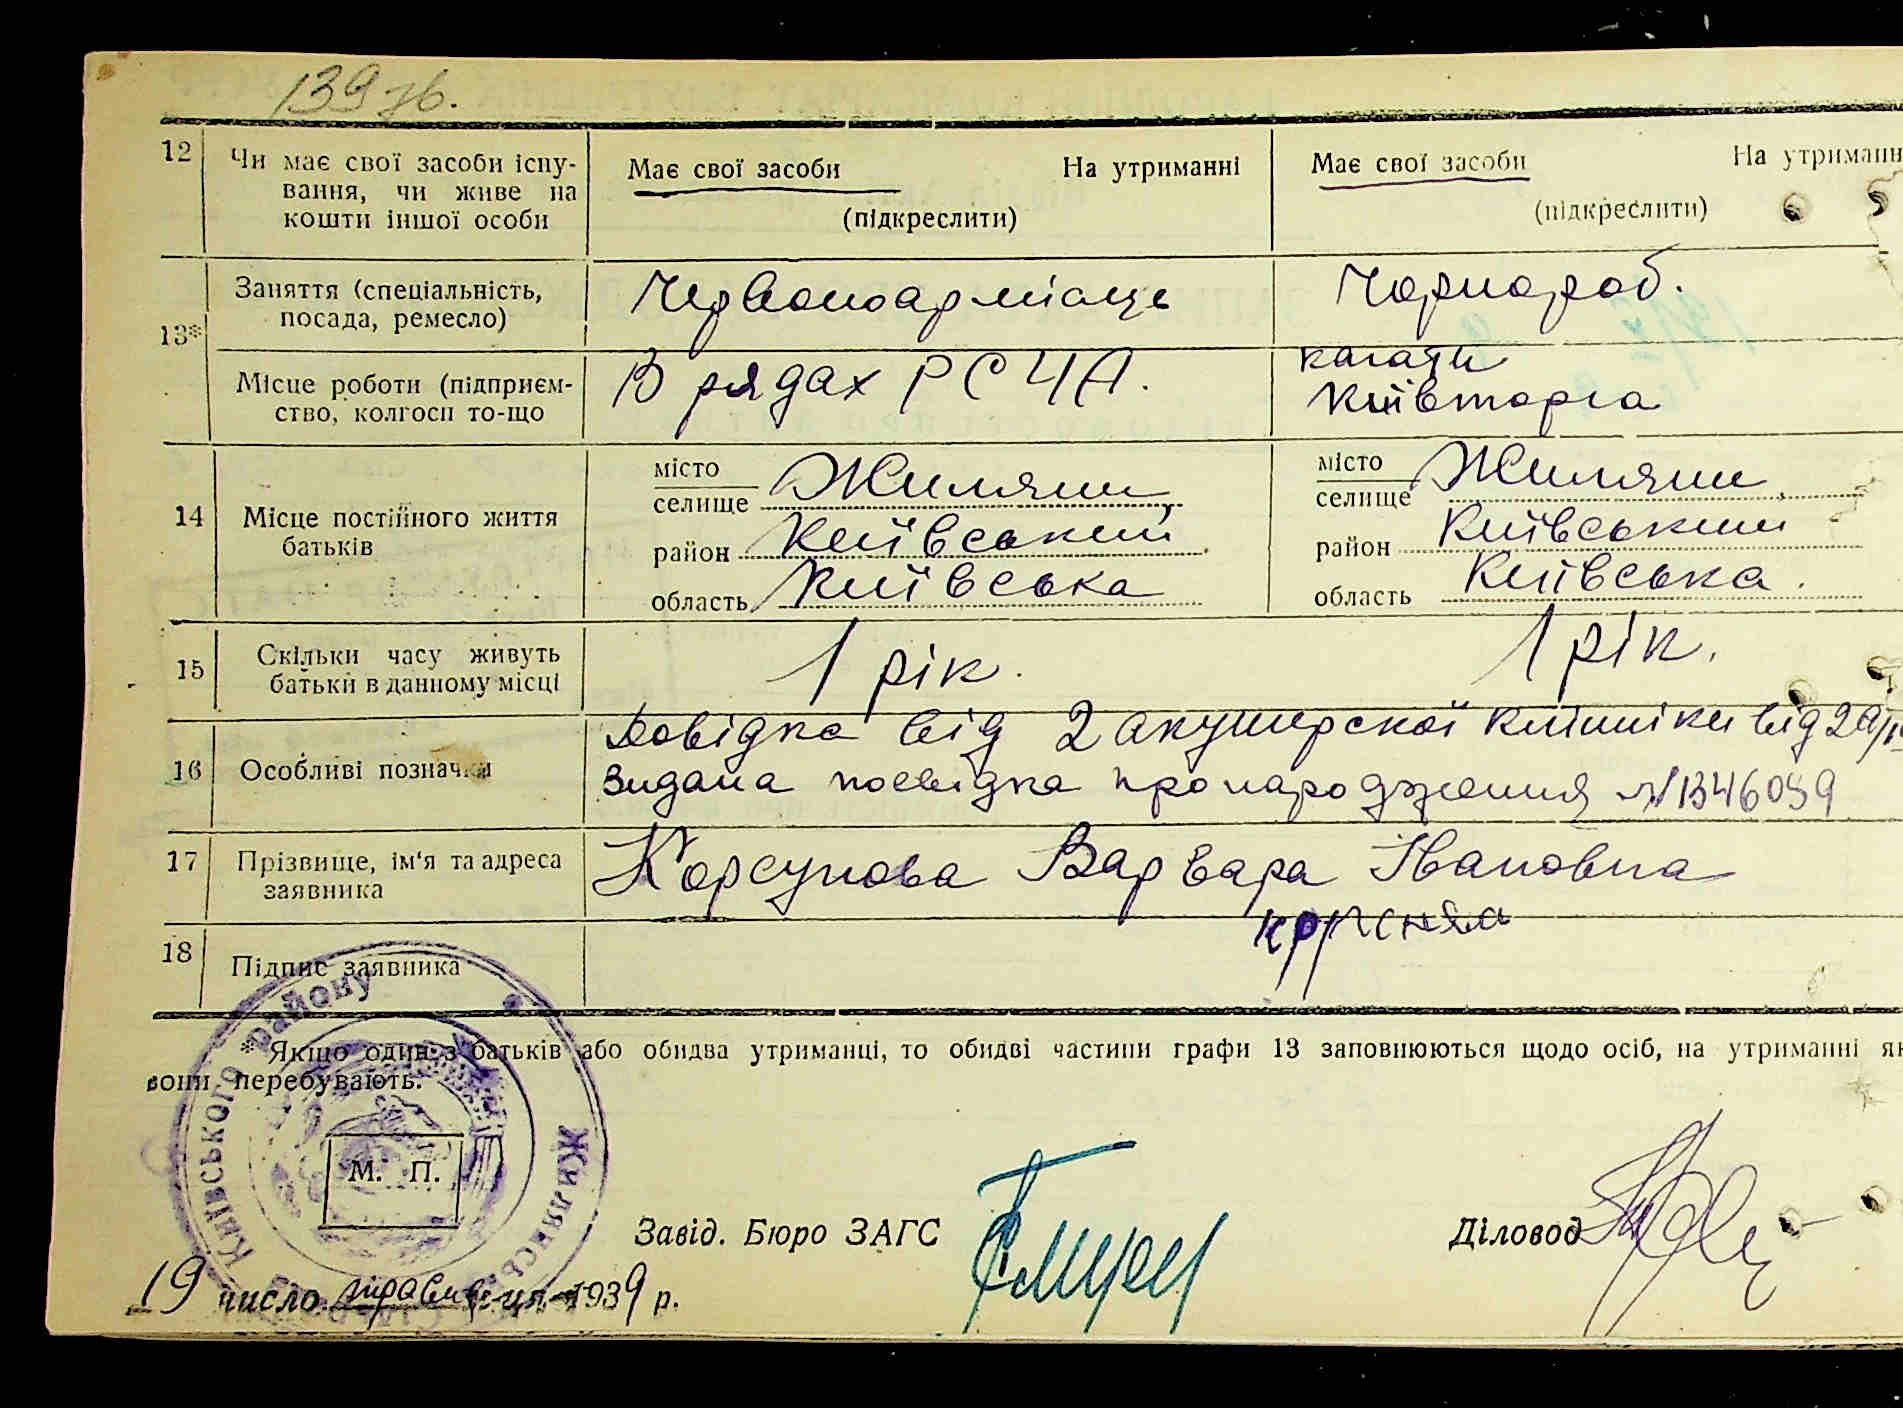 139 зв.
12 Чи має свої засоби існу-
вання, чи живе на
кошти іншої особи
Має свої засоби На утриманні
(підкреслити)
Має свої засоби На утриманн
(підкреслити)
13*
Заняття (спеціальність,
посада, ремесло)
Червоноармієць
Чорнороб.
Місце роботи (підприєм-
ство, колгосп то-що
В рядах РСЧА.
кагати
Київторга
14 Місце постійного життя
батьків
місто
селище Жиляни
район Київський
область Київська
місто
селище Жиляни
район Київський
область Київська.
15 Скільки часу живуть
батьки в данному місці
1 рік.
1 рік.
16 Особливі позначки
Довідка від 2 акушерскої клініки від
Видана посвідка про народження № 1346059
17 Прізвище, ім'я та адреса
заявника
Корсунова Варвара Івановна
18 Підпис заявника
* Якщо один з батьків або обидва утриманці, то обидві частини графи 13 заповнюються щодо осіб, на утриманні як
вони перебувають.
Київського району
Жилянсь
М. П.
Завід. Бюро ЗАГС
Діловод
19 число травня 1939 р.